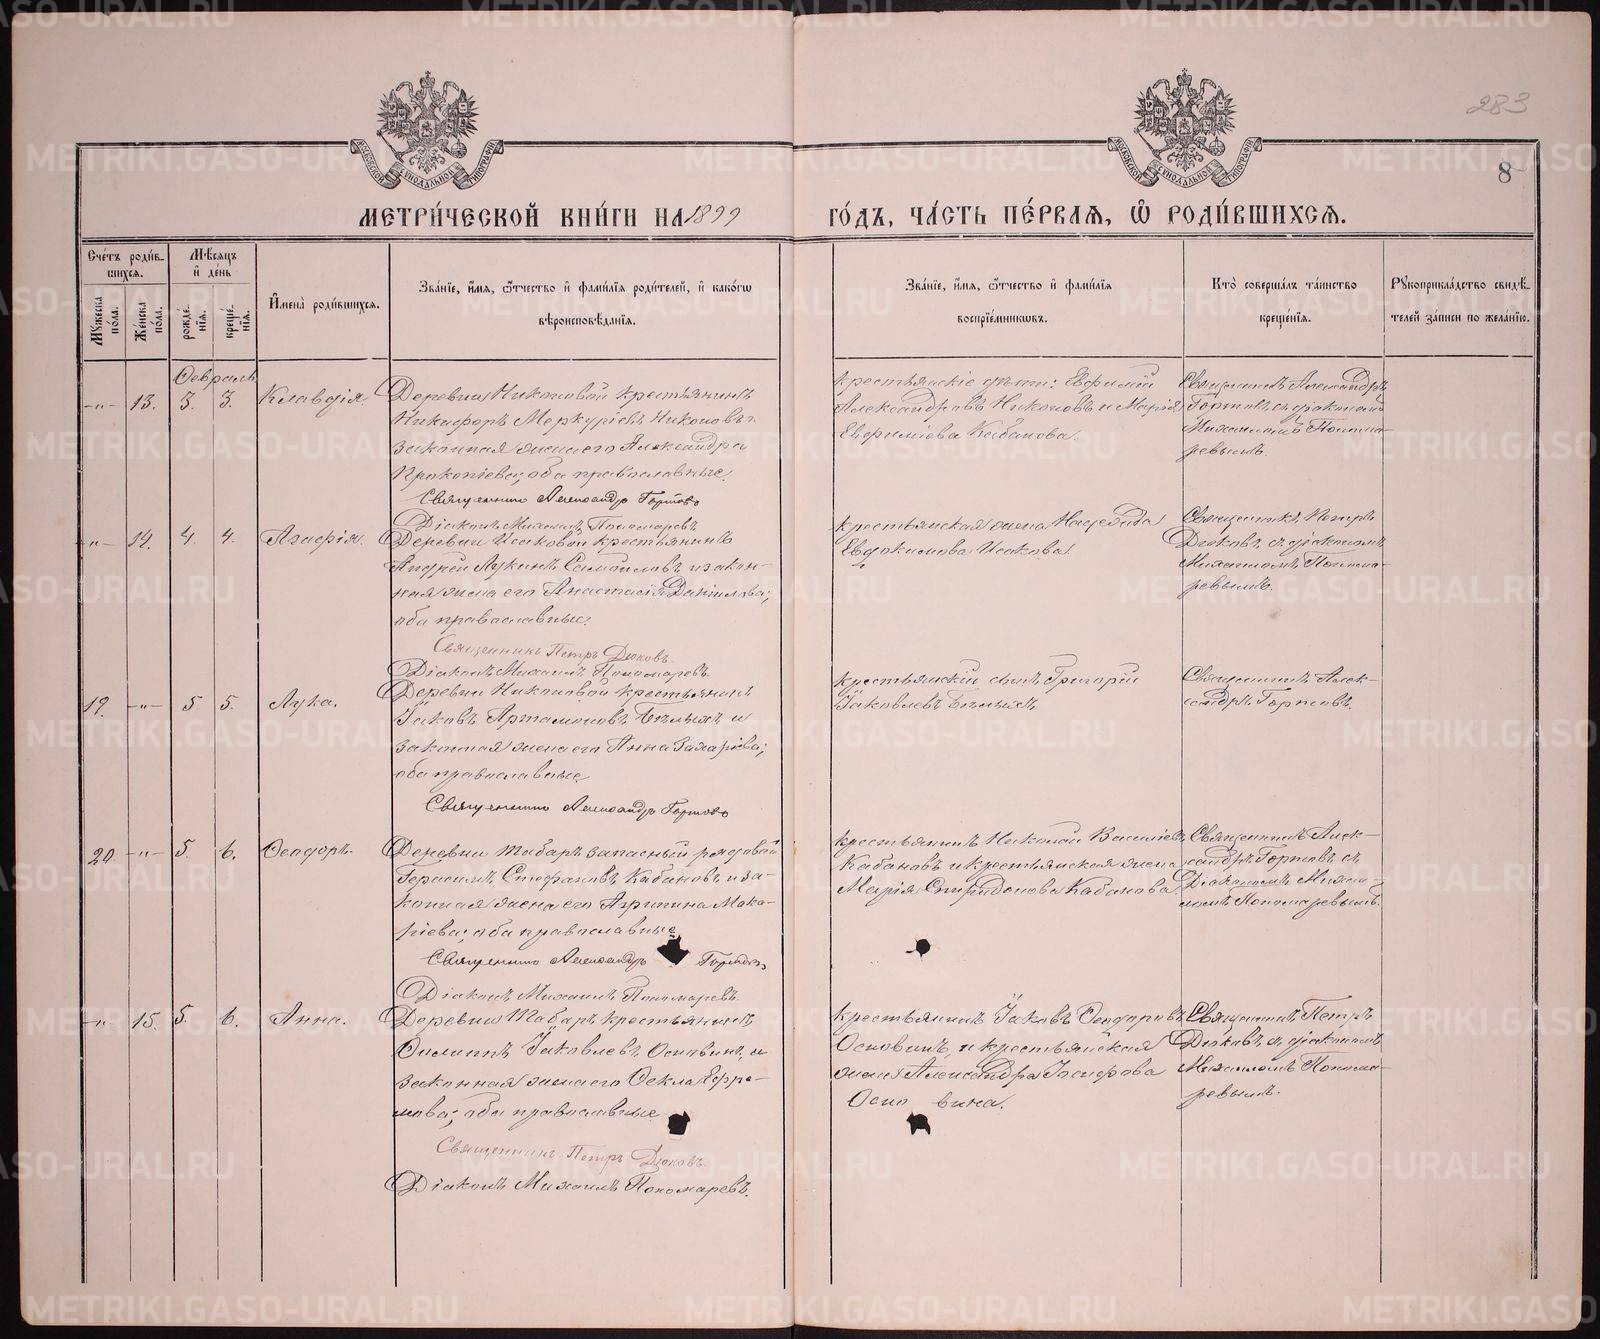 283
8
МЕТРИ́ЧЕСКОЙ КНИ́ГИ НА 1899 ГО́ДЪ, ЧА́СТЬ ПЕ́РВАЯ, Ѡ҆ РОДИ́ВШИХСЯ.
Сче́тъ роди́в-
шихся.
Мѣ́сяцъ
и҆ де́нь
Мꙋ́жеска по́ла.
Же́нска по́ла.
рожде́-
нїя.
креще́-
нїя.
И҆мена̀ роди́вшихся.
Зва́нїе, и҆́мя, ѻ҆́тчество и҆ фами́лїя роди́телей, и҆ како́гѡ
вѣроисповѣ́данїя.
Зва́нїе, и҆́мя, ѻ҆́тчество и҆ фами́лїя
воспрїе́мникѡвъ.
Кто̀ соверша́лъ та́инство
креще́нїя.
Рꙋкоприкла́дство свидѣ́-
телей за́писи по жела́нїю.
Февраль
-"- 13. 3. 3. Клавдія.
Деревни Никоновой крестьянинъ
Никифоръ Меркуріевъ Никоновъ и
законная жена его Александра
Прокопіева; оба православные.
Священникъ Александръ Горновъ
Діаконъ Михаилъ Пономаревъ
крестьянскіе дѣти: Евфимій
Александровъ Никоновъ и Марія
Евфиміева Кабанова.
Священникъ Александръ
съ діакономъ
Михаиломъ Понома-
ревымъ.
-"- 14. 4. 4. Агафія.
Деревни Исаковой крестьянинъ
Андрей Лукинъ Самойловъ и закон-
ная жена его Анастасія Данилова;
оба православные.
Священникъ Петръ Дюковъ.
Діаконъ Михаилъ Пономаревъ.
крестьянская жена
Евдокимова Исакова.
Священникъ Петръ
Дюковъ съ діакономъ
Михаиломъ Понома-
ревымъ.
19. -"- 5. 5. Лука.
Деревни Никоновой крестьянинъ
Іаковъ Артамоновъ Бѣлыхъ и
законная жена его Анна Захаріева;
оба православные
Священникъ Александръ
крестьянскій сынъ Григорій
Іаковлевъ Бѣлыхъ.
Священникъ Алек-
сандръ
20 -"- 5. 6. Ѳеодоръ.
Деревни Табаръ запасный рядовой
Герасимъ Стефановъ Кабановъ и за-
конная жена его Агрипина Мака-
ріева; оба православные
Священникъ Александръ
Діаконъ Михаилъ Пономаревъ.
крестьянинъ Николай Василіевъ
Кабановъ и крестьянская жена
Марія Спиридонова Кабанова
Священникъ Алек-
сандръ съ
Діакономъ Михаи-
ломъ Пономаревымъ.
-"- 15. 5. 6. Анна.
Деревни Табаръ крестьянинъ
Филиппъ Іаковлевъ Основинъ и
законная жена его Ѳекла Ефре-
мова; оба православные
Священникъ Петръ Дюковъ.
Діаконъ Михаилъ Пономаревъ.
крестьянинъ Іаковъ Ѳеодоровъ
Основинъ и крестьянская
жена Александра Іосифова
Основина.
Священникъ Петръ
Дюковъ съ діакономъ
Михаиломъ Понома-
ревымъ.
METRIKI.GASO-URAL.RU